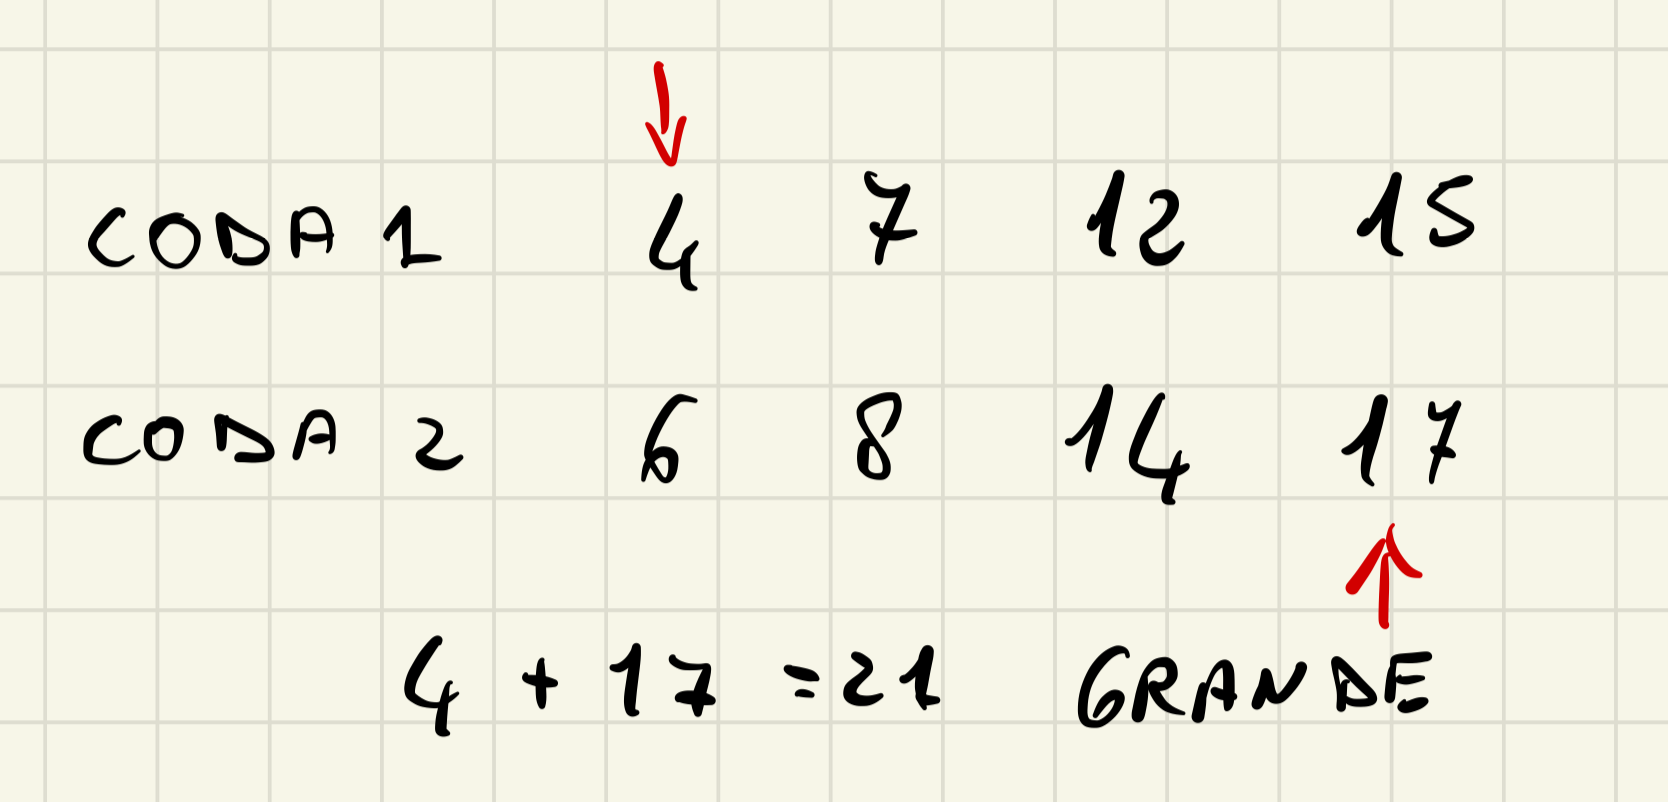 CODA 1 4 7 12 15
CODA 2 6 8 14 17
4 + 17 = 21 GRANDE